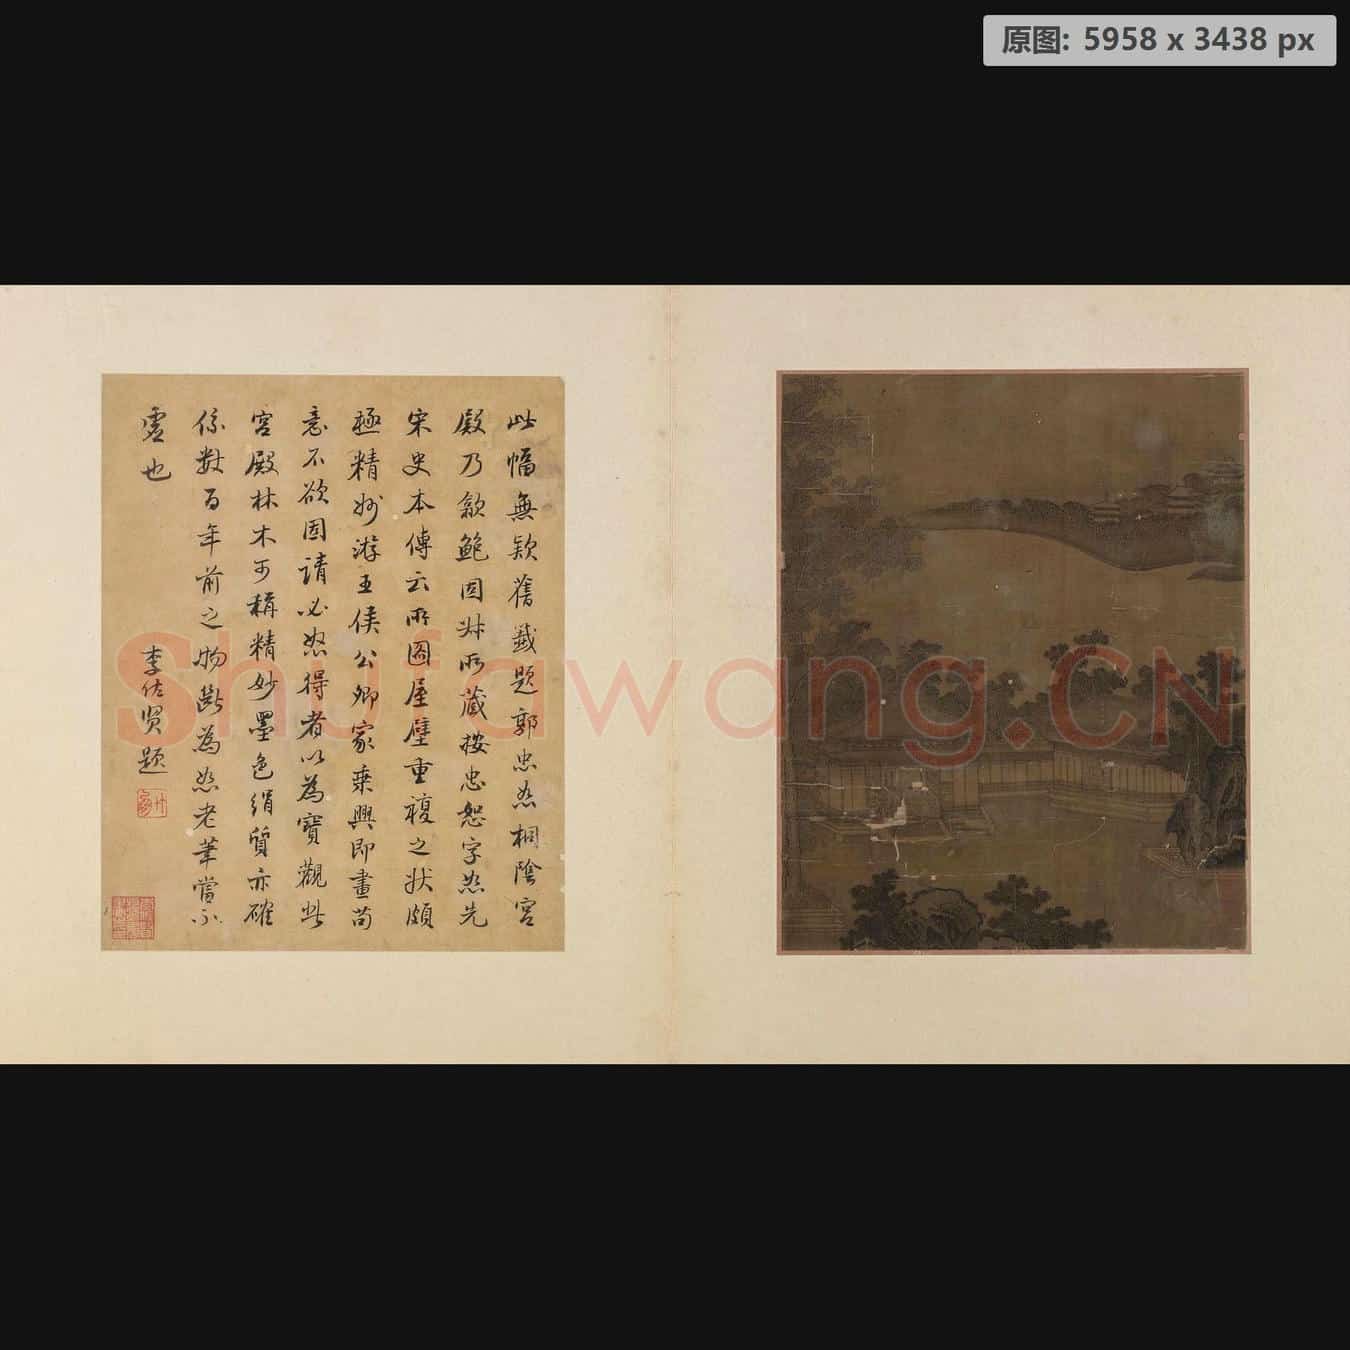 原图: 5958 x 3438 px
此幅無欵舊籤題郭忠恕桐陰宮
殿乃歙鮑固叔所藏按忠恕字恕先
宋史本傳云所圖屋壁重複之狀頗
極精妙游王侯公卿家乘興即畫苟
意不欲固請必怒得者以為寶觀此
宮殿林木可稱精妙墨色絹質亦確
係數百年前之物斷為恕老筆當不
虛也
李佐賢題
Shufawang.CN